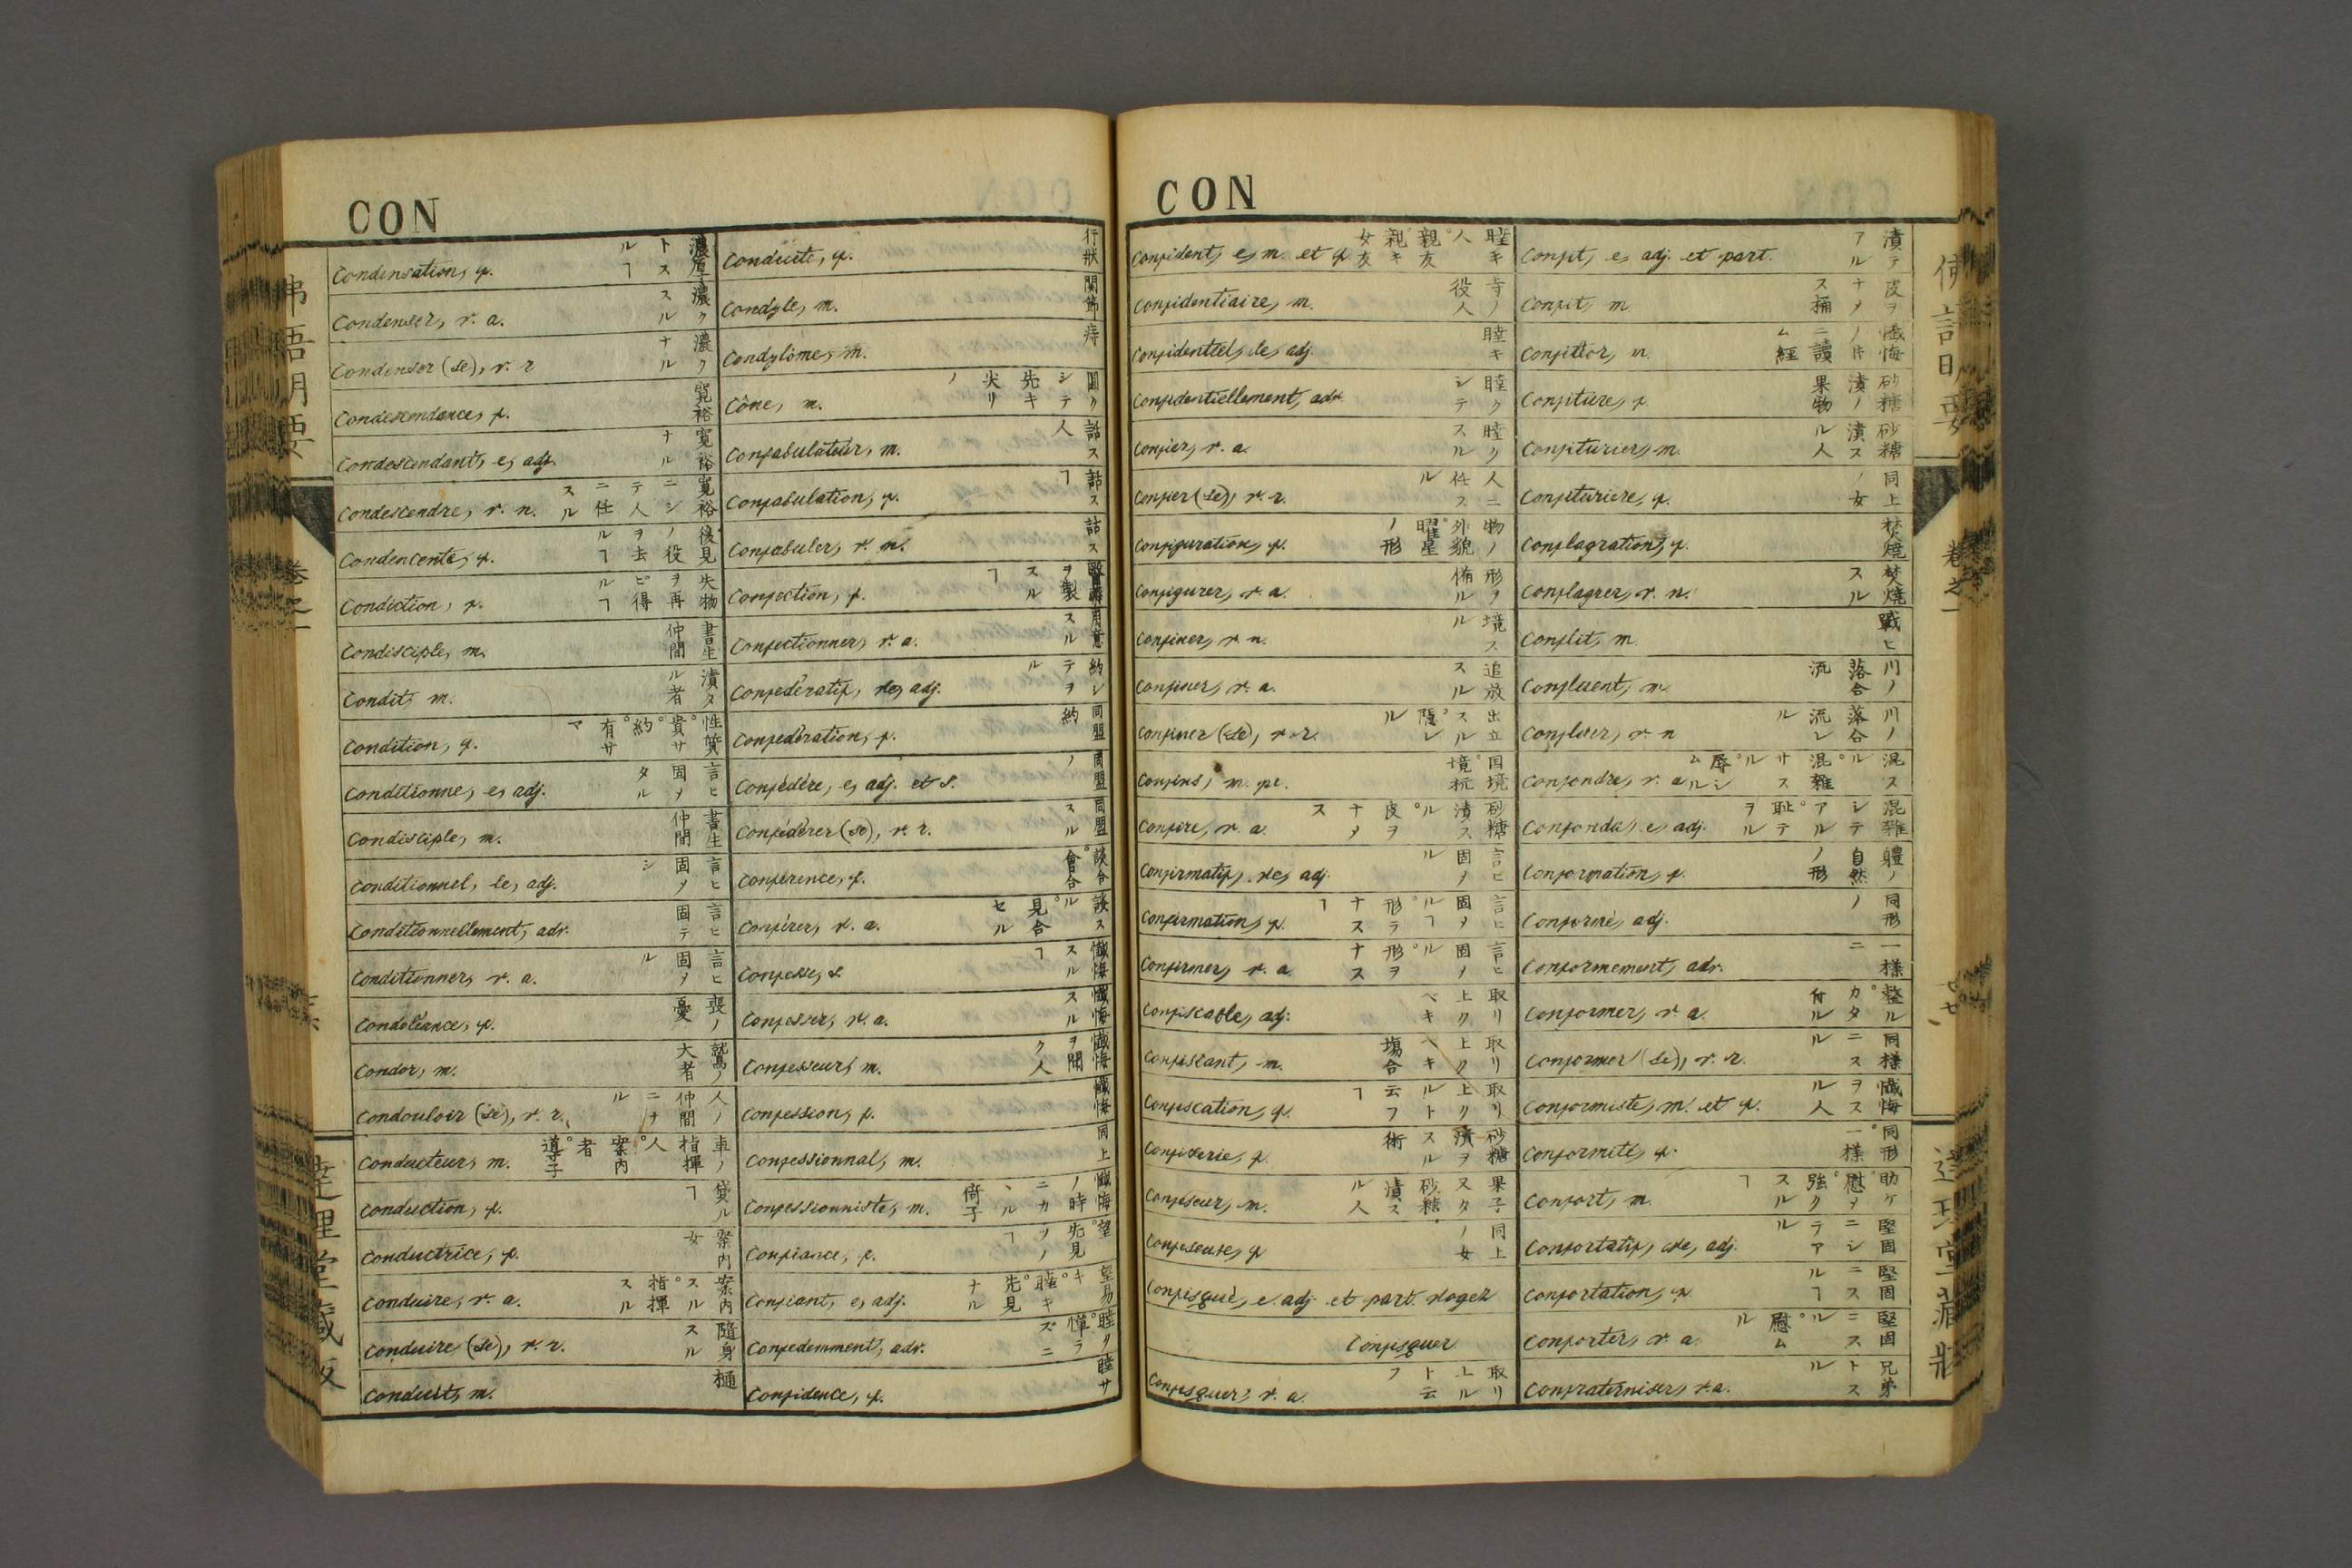 CON
Condensation, f. 濃厚トスルヿ
Condenser, v. a. 濃クスル
Condenser (se), v. r. 濃クナル
Condescendance, f. 寛裕
Condescendant, e, adj. 寛裕ナル
Condescendre, v. n. 寛裕ニシテ人ニ任スル
Condencente, f. 後見ノ役ヲ去ルヿ
Condiction, f. 失物ヲ再ビ得ルヿ
Condisciple, m. 書生仲間
Condit, m. 漬タル者
Condition, f. 性質。貴サ。約。有サマ
Conditionne, e, adj. 言ヒ固メタル
Condisciple, m. 書生仲間
Conditionnel, le, adj. 言ヒ固メシ
Conditionnellement, adv. 言ヒ固テ
Conditionner, v. a. 言ヒ固メル
Condoléance, f. 喪ノ憂
Condor, m. 鷲ノ大者
Condouloir (se), v. r. 人ノ仲間ニナル
Conducteur, m. 車ノ指揮人。案内者。導子
Conduction, f. 貸ルヿ
Conductrice, f. 案内女
Conduire, v. a. 案内スル。指揮スル
Conduire (se), v. r. 隨身スル
Conduit, m. 樋
Conduite, f. 行狀
Condyle, m. 関節
Condylôme, m. 痔
Cône, m. 圓クシテ先キ尖リノ
Confabulateur, m. 話ス人
Confabulation, f. 話スヿ
Confabuler, v. n. 話ス
Confection, f. ヲ製スルヿ
Confectionner, v. a. 用意スル
Confédératif, ve, adj. 約シテヲル
Confédération, f. 同盟約
Confédéré, e, adj. et s. 同盟ノ
Confédérer (se), v. r. 同盟スル
Conférence, f. 談合。會合
Conférer, v. a. 談スル。見合セル
Confesse, s. 懺悔スルヿ
Confesser, v. a. 懺悔スル
Confesseur, m. 懺悔ヲ聞ク人
Confession, f. 懺悔
Confessionnal, m. 同上
Confessionniste, m. 懺悔ノ時ニカヽル倚子
Confiance, f. 望。先見ノヿ
Confiant, e, adj. 望易キ。睦キ。先見ナル
Confedemment, adv. 睦ク。憚ラズニ
Confidence, f. 睦サ
CON
Confident, e, m. et f. 睦キ人。親友。親キ女友
Confidentiaire, m. 寺ノ役人
Confidentiel, le, adj. 睦キ
Confidentiellement, adv. 睦クシテ
Confier, v. a. 睦クスル
Confier (se), v. r. 人ニ任スル
Configuration, f. 物ノ外貌。曜星ノ形
Configurer, v. a. 形ヲ備ル
Confiner, v. n. 境スル
Confiner, v. a. 追放スル
Confiner (se), v. r. 出立スル。隠レル
Confins, m. pl. 国境。境杭
Confire, v. a. 砂糖漬スル。皮ヲナメス
Confirmatif, ve, adj. 言ヒ固メル
Confirmation, f. 言ヒ固メルヿ。形ラナスヿ
Confirmer, v. a. 言ヒ固メル。形ヲナス
Confiscable, adj. 取リ上クベキ
Confiscant, m. 取リ上クベキ塲合
Confiscation, f. 取リ上クルト云フヿ
Confiserie, f. 砂糖漬ヲスル術
Confiseur, m. 果子又タ砂糖漬スル人
Confiseuse, f. 同上ノ女
Confisqué, e adj. et part. Voyez
Confisquer
Confisquer, v. a. 取リ上ルト云フ
Confit, e, adj. et part. 漬テアル
Confit, m. 皮ヲナメス桶
Confiteor, m. 懺悔ノ時ニ讀ム経
Confiture, f. 砂糖漬ノ果物
Confiturier, m. 砂糖漬スル人
Confituriere, f. 同上ノ女
Conflagration, f. 焚焼
Conflagrer, v. n. 焚焼スル
Conflit, m. 戰ヒ
Confluent, m. 川ノ落合流
Confluer, v. n. 川ノ落合流レル
Confondre, v. a. 混スル。混雜サスル。辱シムル
Confondu, e, adj. 混雜シテアル。耻テヲル
Conformation, f. 軆ノ自然ノ形
Conformé, adj. 同形ノ
Conformement, adv. 一様ニ
Conformer, v. a. 整ル。カタ付ル
Conformer (se), v. r. 同様ニスル
Conformiste, m. et f. 懺悔ヲスル人
Conformité, f. 同形。一様
Confort, m. 助ケ。慰メ。強クスルヿ
Confortatif, ve, adj. 堅固ニシテアル
Confortation, f. 堅固ニスルヿ
Conforter, v. a. 堅固ニスル。慰ムル
Confraterniser, v. a. 兄弟トスル
卷之一
達理堂藏版